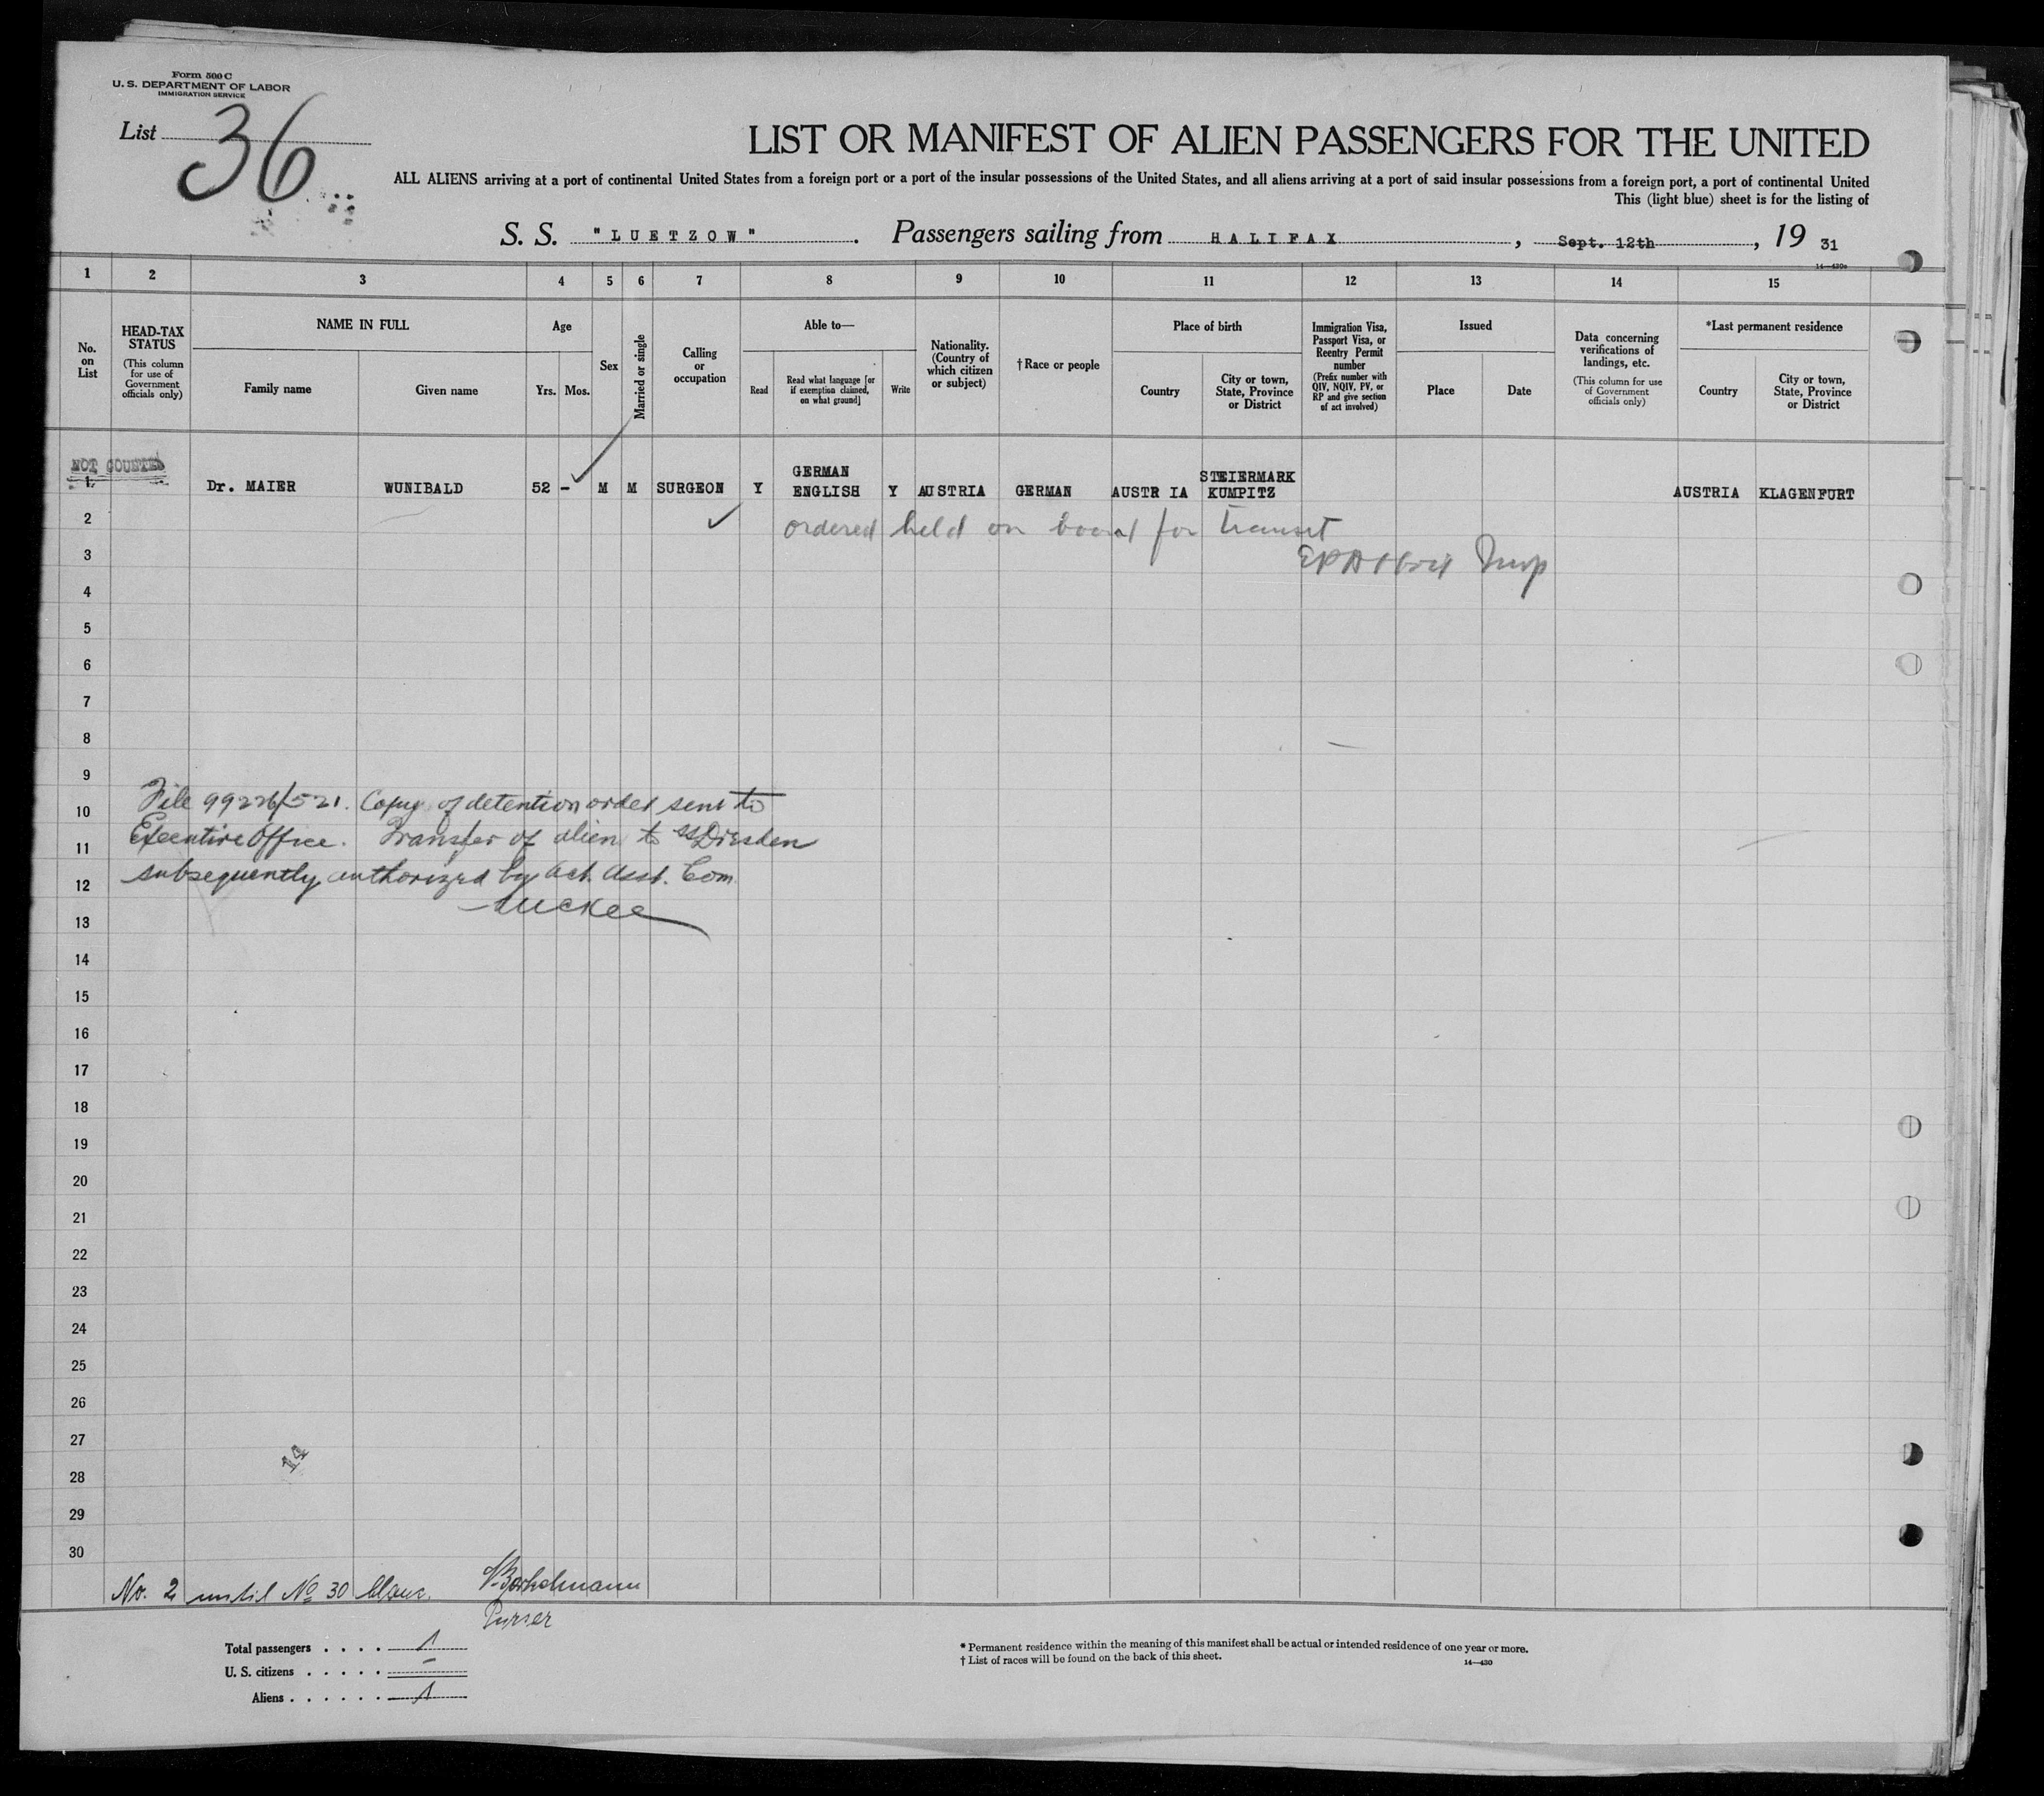 Form 500 C
U. S. DEPARTMENT OF LABOR
IMMIGRATION SERVICE
List 36
LIST OR MANIFEST OF ALIEN PASSENGERS FOR THE UNITED
ALL ALIENS arriving at a port of continental United States from a foreign port or a port of the insular possessions of the United States, and all aliens arriving at a port of said insular possessions from a foreign port, a port of continental United
This (light blue) sheet is for the listing of
S. S. "LUETZOW". Passengers sailing from HALIFAX, Sept. 12th, 19 31
14—430a
1 2 3 4 5 6 7 8 9 10 11 12 13 14 15
No. on List
HEAD-TAX STATUS (This column for use of Government officials only)
NAME IN FULL
Family name
Given name
Age
Yrs. Mos.
Sex
Married or single
Calling or occupation
Able to—
Read
Read what language [or if exemption claimed, on what ground]
Write
Nationality. (Country of which citizen or subject)
†Race or people
Place of birth
Country
City or town, State, Province or District
Immigration Visa, Passport Visa, or Reentry Permit number (Prefix number with QIV, NQIV, PV, or RP and give section of act involved)
Issued
Place
Date
Data concerning verifications of landings, etc. (This column for use of Government officials only)
*Last permanent residence
Country
City or town, State, Province or District
NOT COUNTED
1 Dr. MAIER WUNIBALD 52 - M M SURGEON Y GERMAN ENGLISH Y AUSTRIA GERMAN AUSTR IA STEIERMARK KUMPITZ AUSTRIA KLAGENFURT
2 ordered held on board for transit
3 Insp
4
5
6
7
8
9
10 File 99226/521. Copy of detention order sent to
11 Executive Office. Transfer of alien to SS Dresden
12 subsequently authorized by Act. Asst. Com.
13 McKee
14
15
16
17
18
19
20
21
22
23
24
25
26
27
28 14
29
30
No. 2 until No 30 blanc.
Purser
Total passengers . . . . 1
U. S. citizens . . . . . –
Aliens . . . . . . 1
* Permanent residence within the meaning of this manifest shall be actual or intended residence of one year or more.
† List of races will be found on the back of this sheet.
14—430